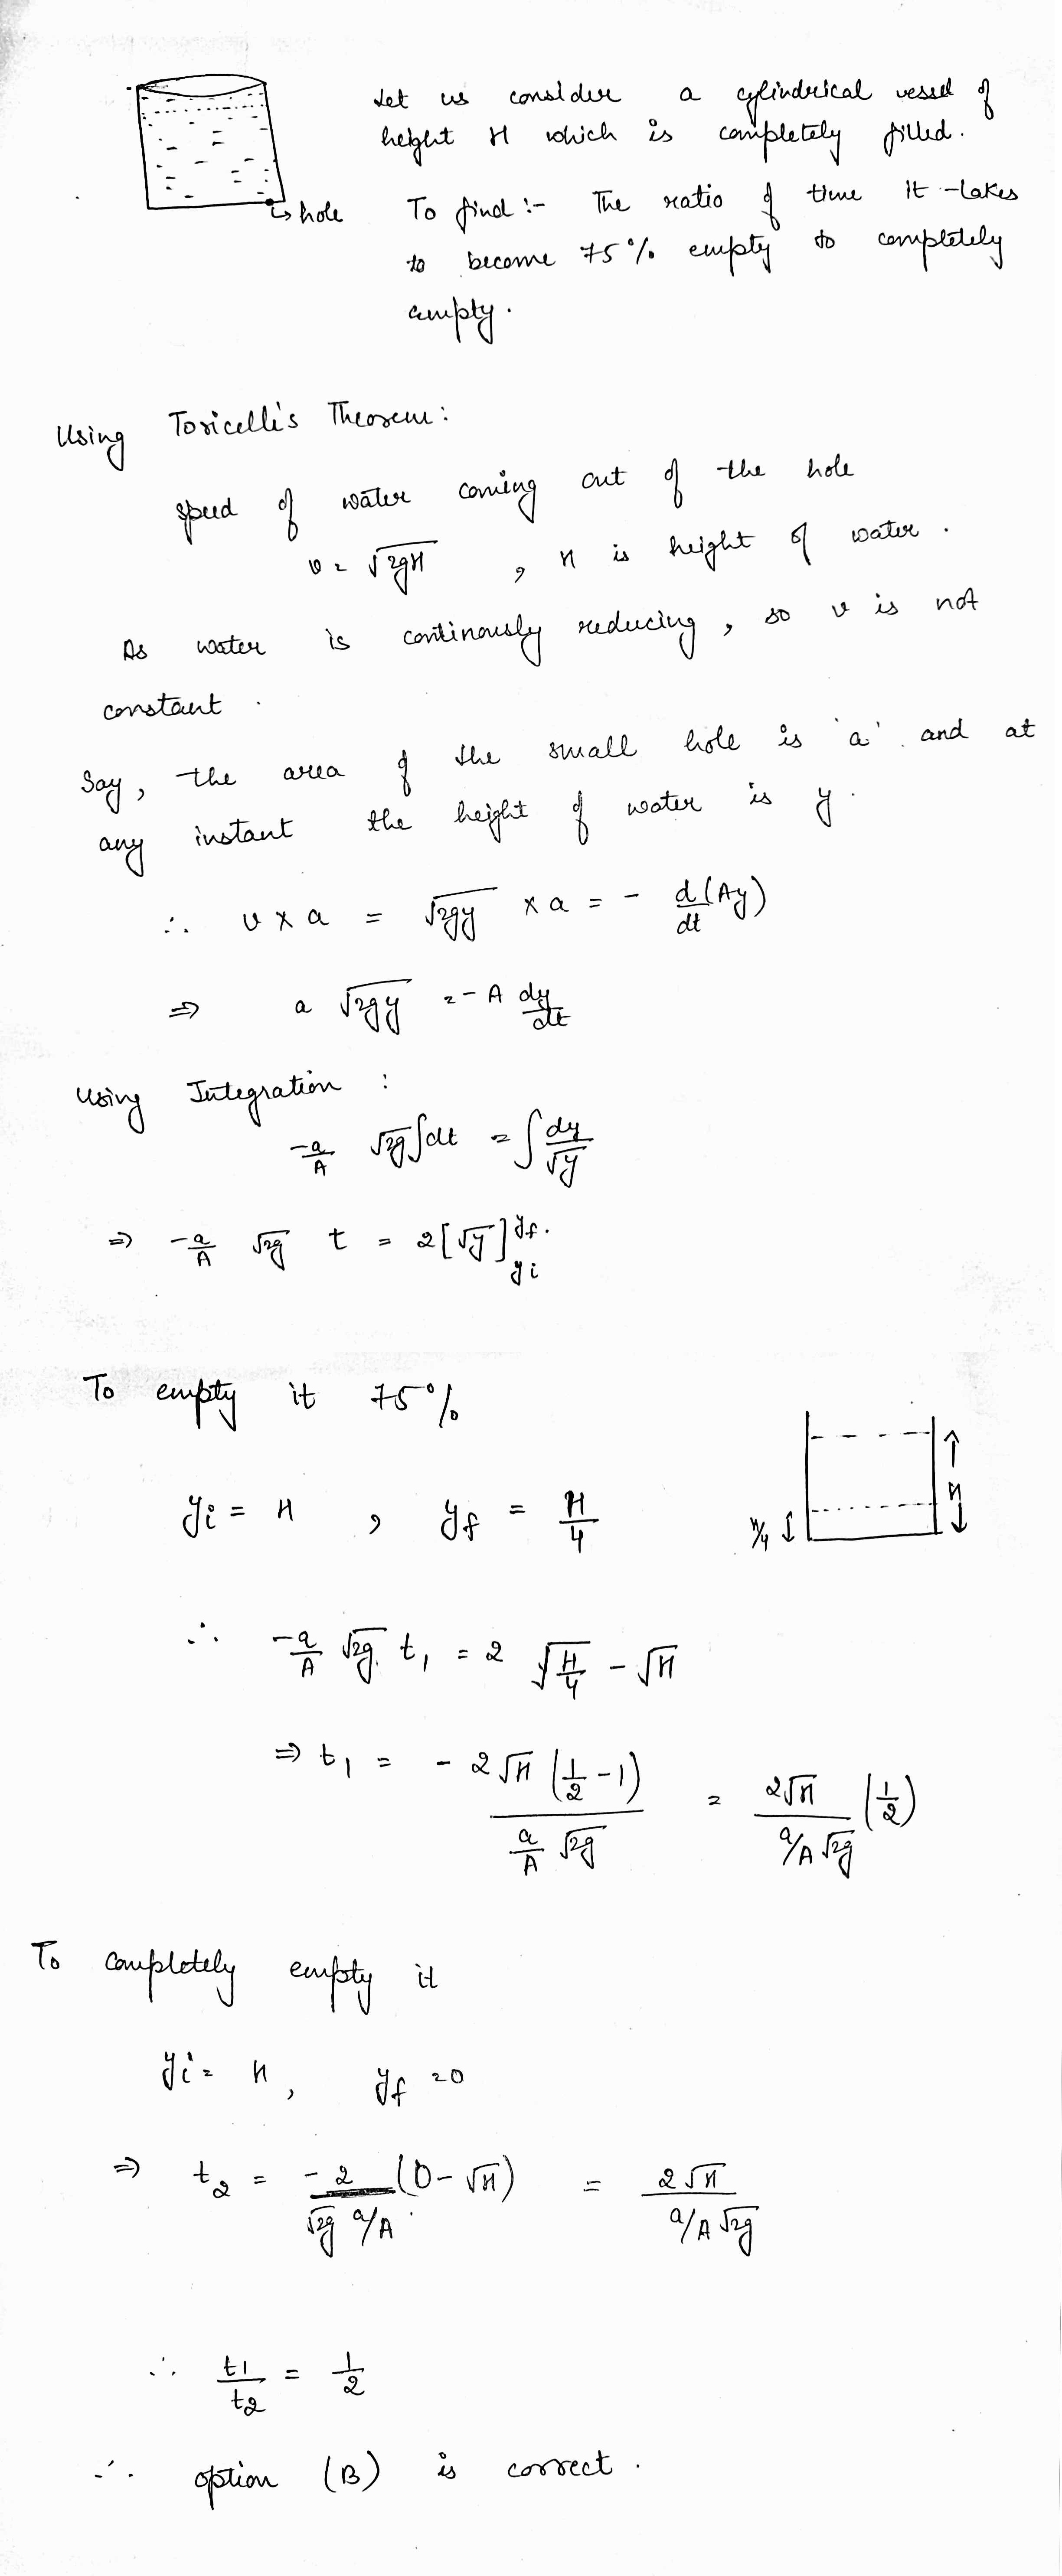 Let us consider a cylindrical vessel of
height H which is completely filled.
↳ hole
To find :- The ratio of time it takes
to become 75% empty to completely
empty.
Using Toricelli's Theorem:
speed of water coming out of the hole
v = √2gH , H is height of water.
As water is continously reducing, so v is not
constant.
Say, the area of the small hole is 'a' and at
any instant the height of water is y.
∴ v × a = √2gy × a = - d(Ay)/dt
⇒ a √2gy = - A dy/dt
Using Integration :
-a/A √2g ∫dt = ∫ dy/√y
⇒ -a/A √2g t = 2[√y]^{yf}_{yi}
To empty it 75%
yi = H , yf = H/4
H/4 ↕ H
∴ -a/A √2g t₁ = 2 √H/4 - √H
⇒ t₁ = - 2√H (1/2 - 1) / (a/A √2g) = 2√H / (a/A √2g) (1/2)
To completely empty it
yi = H, yf = 0
⇒ t₂ = -2 (0 - √H) / (√2g a/A) = 2√H / (a/A √2g)
∴ t₁/t₂ = 1/2
∴ option (B) is correct.